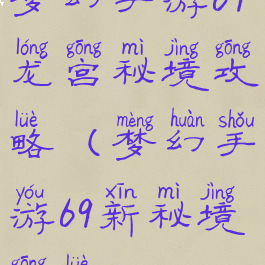 梦幻手游69
lóng gōng mì jìng gōng
龙宫秘境攻
lüè mèng huàn shǒu
略(梦幻手
yóu xīn mì jìng
游69新秘境
gōng lüè